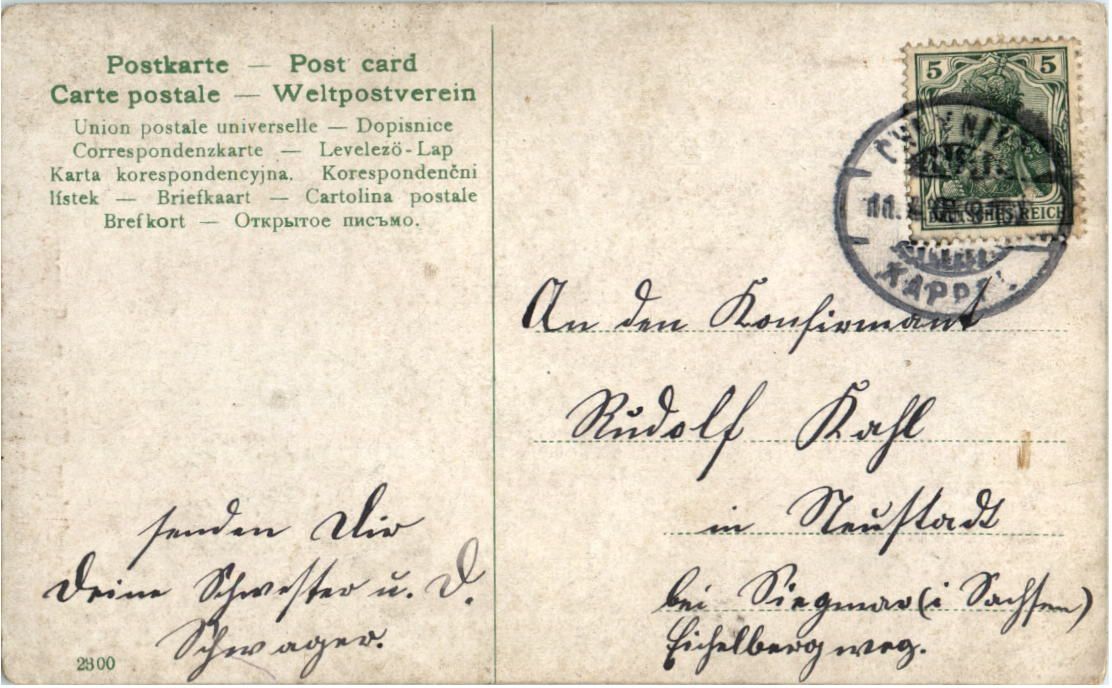 Postkarte — Post card
Carte postale — Weltpostverein
Union postale universelle — Dopisnice
Correspondenzkarte — Levelező-Lap
Karta korespondencyjna. Korespondenčni
lístek — Briefkaart — Cartolina postale
Brefkort — Открытое письмо.
senden Dir
Deine Schwester u. D.
Schwager.
2300
5 5
DEUTSCHES REICH
KAPPEL
An den Konfirmant
Rudolf Kahl
in Neustadt
bei Siegmar (i Sachsen)
Eichelbergweg.